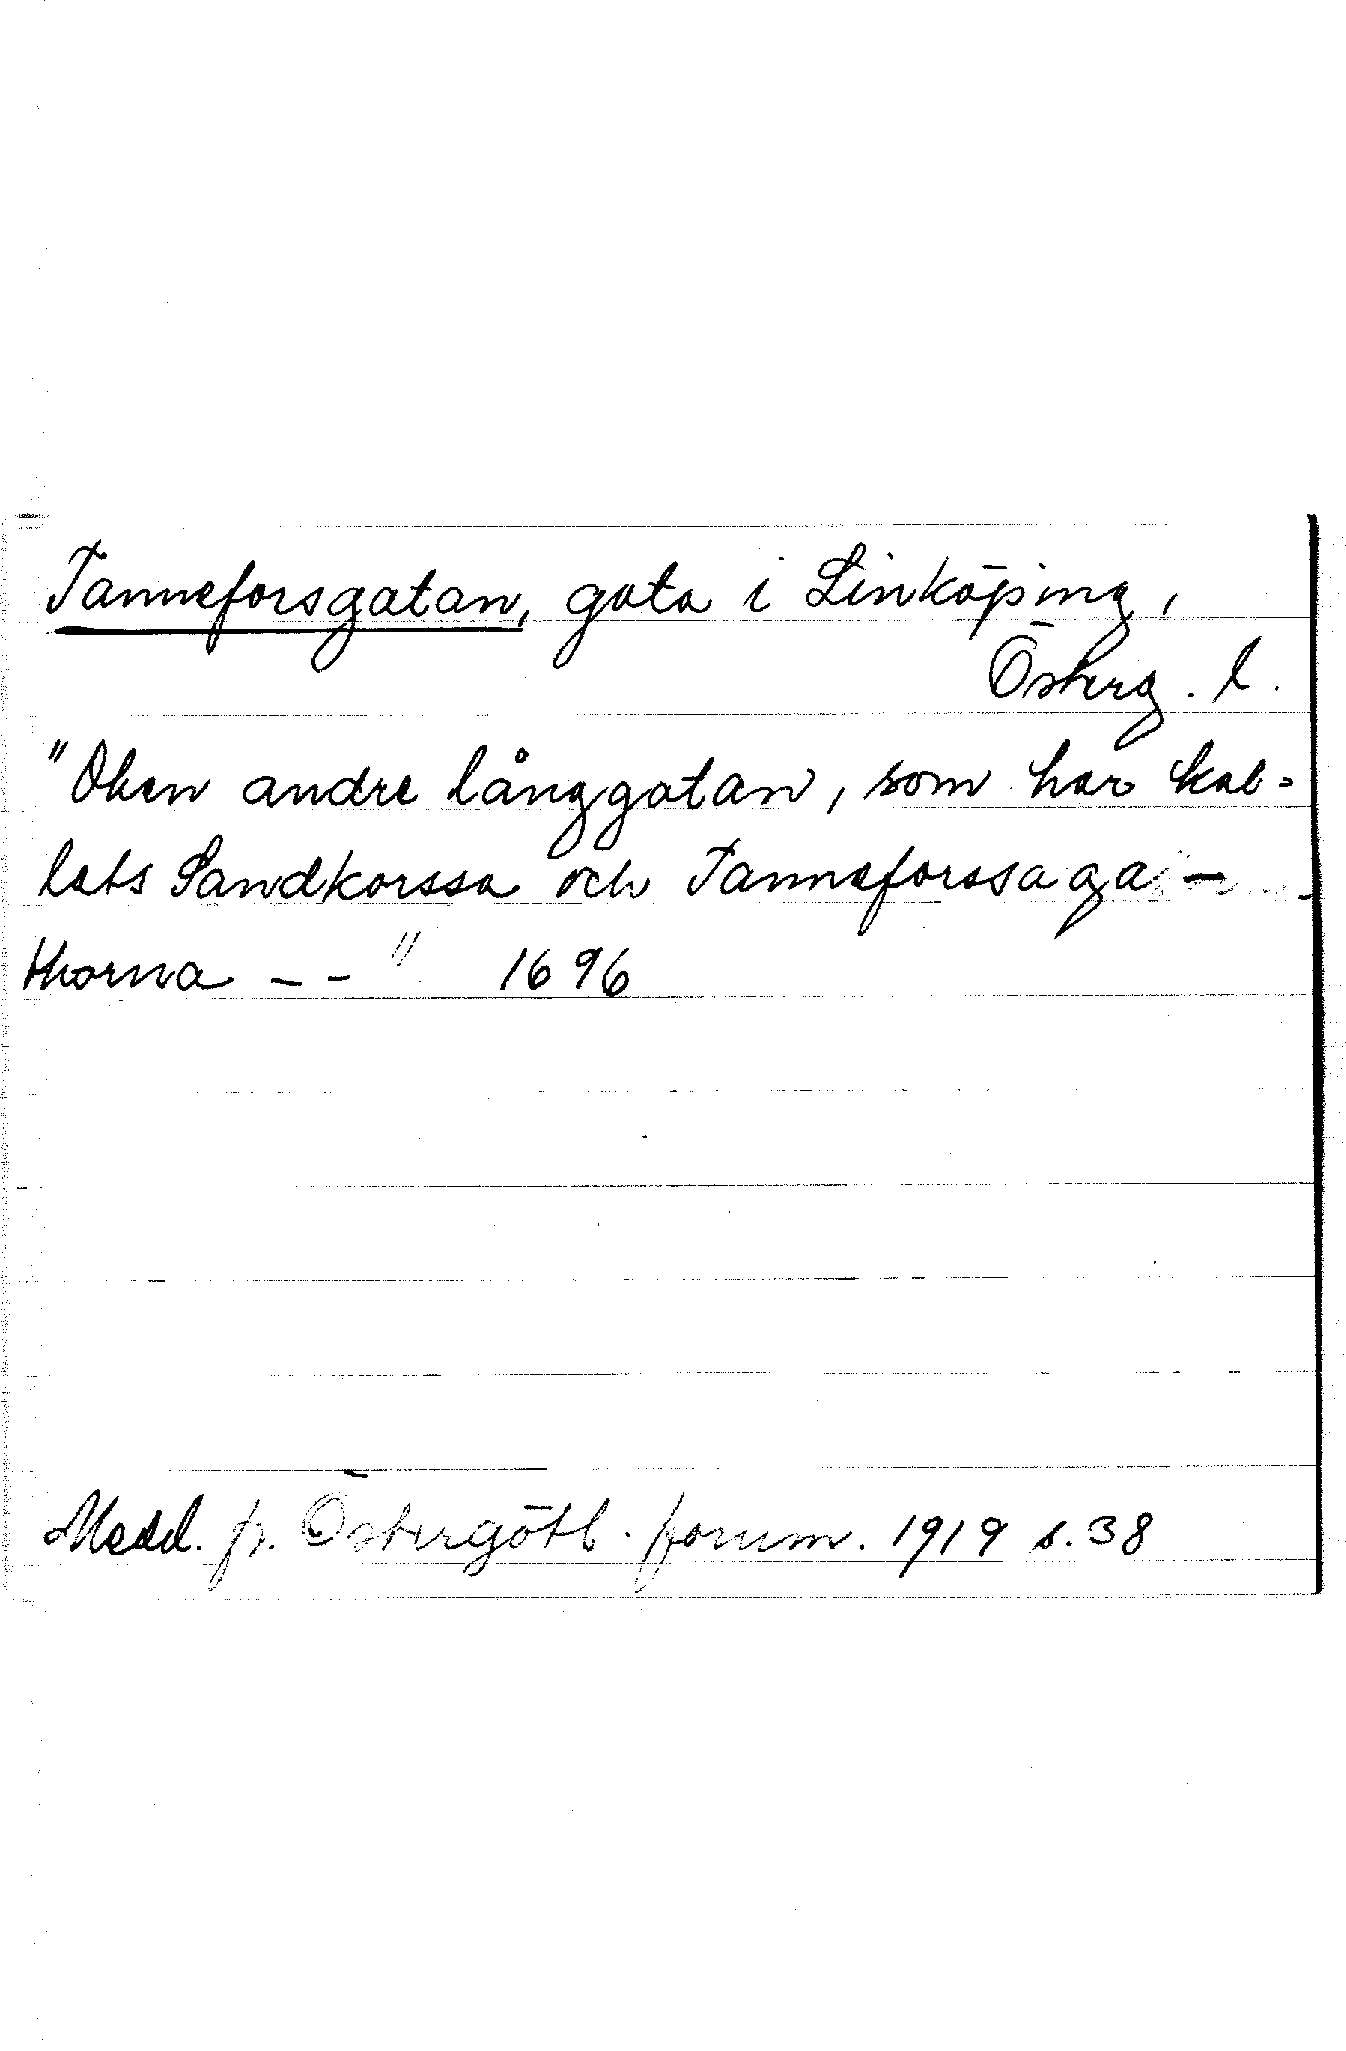 Tanneforsgatan, gata i Linköping,
Österg. l.
"Oben andre långgatan, som har kal-
lats Sandkorssa och Tanneforssaga -
thorna - - " 1696
Medd. fr. Östergötl. fornm. 1919 s. 38